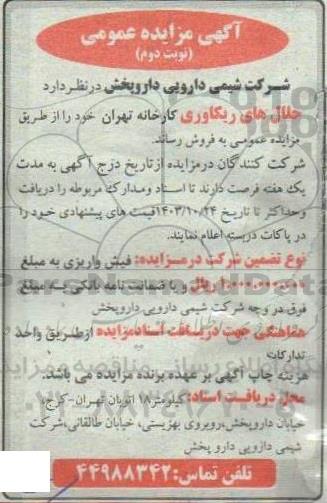 آگهی مزایده عمومی
(نوبت دوم)
شرکت شیمی دارویی داروپخش درنظردارد
حلال های ریکاوری کارخانه تهران خود را از طریق
مزایده عمومی به فروش رساند.
شرکت کنندگان درمزایده ازتاریخ درج آگهی به مدت
یک هفته فرصت دارند تا اسناد ومدارک مربوطه را دریافت
وحداکثر تا تاریخ ۱۴۰۳/۱۰/۲۴ قیمت های پیشنهادی خود را
در پاکات دربسته اعلام نمایند.
نوع تضمین شرکت درمزایده: فیش واریزی به مبلغ
ریال و یا ضمانت نامه بانکی به مبلغ
فوق در وجه شرکت شیمی دارویی داروپخش
هماهنگی جهت دریافت اسنادمزایده ازطریق واحد
تدارکات
هزینه چاپ آگهی بر عهده برنده مزایده می باشد.
محل دریافت اسناد: کیلومتر۱۸ اتوبان تهران-کرج،
خیابان داروپخش،روبروی بهزیستی، خیابان طالقانی،شرکت
شیمی دارویی دارو پخش
تلفن تماس:۴۴۹۸۸۳۴۲